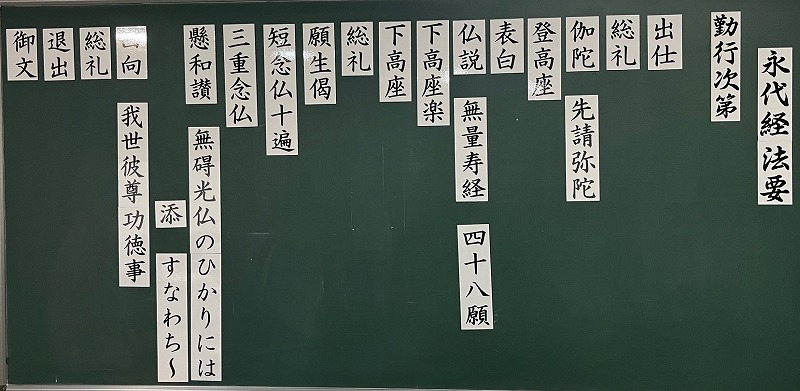 永代経法要
勤行次第
出仕
総礼
伽陀 先請弥陀
登高座
表白
仏説 無量寿経 四十八願
下高座楽
下高座
総礼
願生偈
短念仏十遍
三重念仏
懸和讃 無碍光仏のひかりには
添 すなわち〜
回向 我世彼尊功徳事
総礼
退出
御文